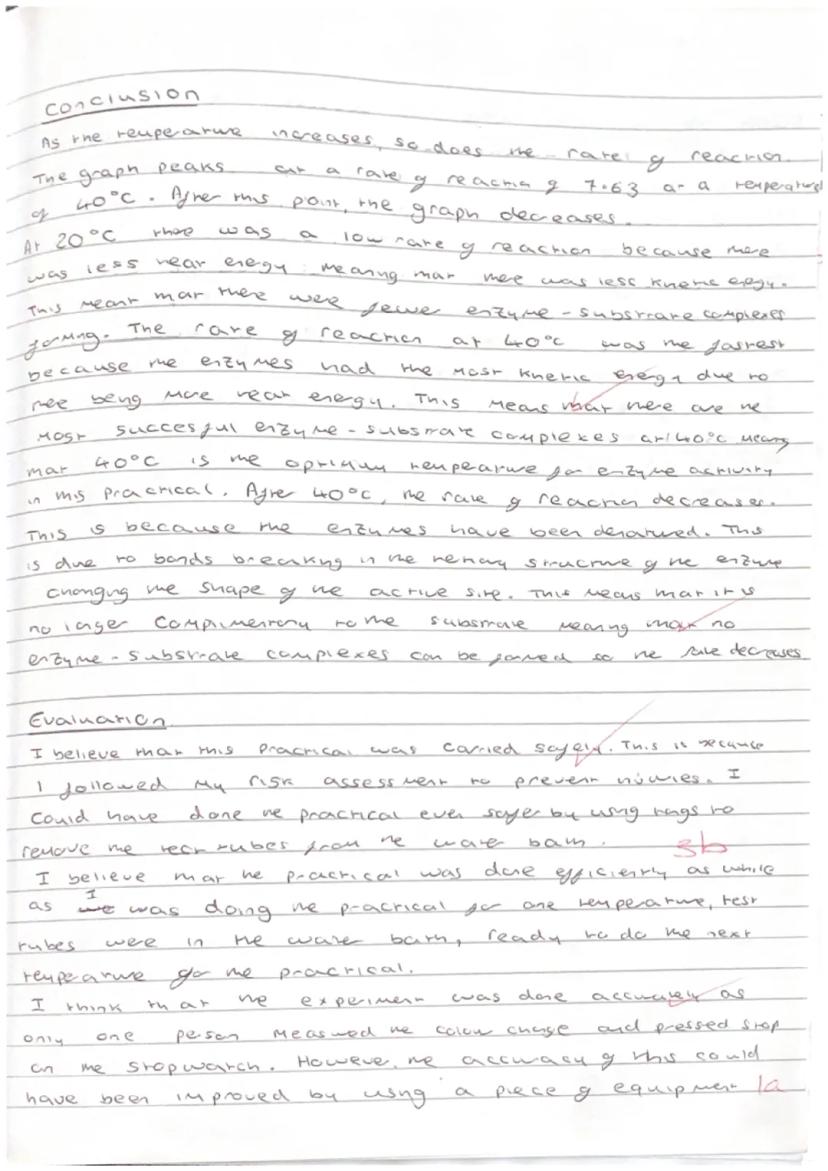 Conclusion
As the temperature increases, so does the rate of reaction.
The graph peaks at a rate of reaction of 7.63 at a temperature
of 40°C. After this point, the graph decreases.
At 20°C there was a low rate of reaction because there
was less heat energy meaning that there was less kinetic energy.
This meant that there were fewer enzyme-substrate complexes
forming. The rate of reaction at 40°C was the fastest
because the enzymes had the most kinetic energy due to
there being more heat energy. This means that there are the
most succesful enzyme-substrate complexes at 40°C meaning
that 40°C is the optimum temperature for enzyme activity
in this practical. After 40°C, the rate of reaction decreases.
This is because the enzymes have been denatured. This
is due to bonds breaking in the tertiary structure of the enzyme
changing the shape of the active site. This means that it is
no longer complimentary to the substrate meaning that no
enzyme-substrate complexes can be formed so the rate decreases
Evaluation
I believe that this practical was carried safely. This is because
I followed my risk assessment to prevent injuries. I
could have done the practical even safer by using tongs to
remove the test tubes from the water bath. 3b
I believe that the practical was done efficiently as while
as I was doing the practical for one temperature, test
tubes were in the water bath, ready to do the next
temperature for the practical.
I think that the experiment was done accurately as
only one person measured the colour change and pressed stop
on the stopwatch. However, the accuracy of this could
have been improved by using a piece of equipment 1a